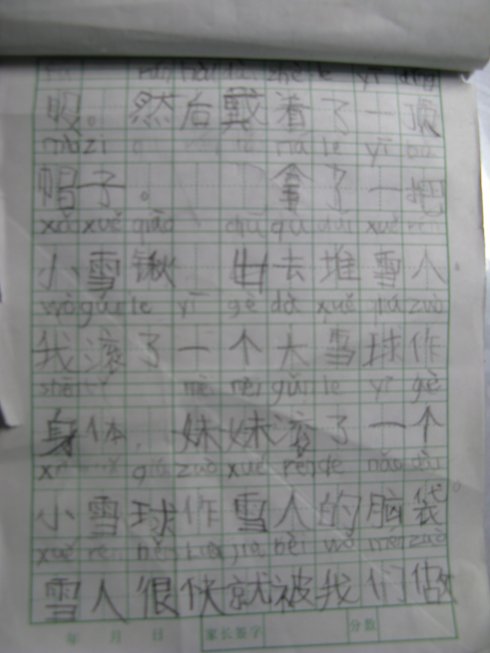 服。然后戴着了一顶
mào zi ná le yī bǎ
帽子。拿了一把
xiǎo xuě qiāo chū qù duī xuě rén
小雪锹 出去堆雪人。
wǒ gǔn le yī gè dà xuě qiú zuò
我滚了一个大雪球作
shēn tǐ mèi mei gǔn le yī gè
身体,妹妹滚了一个
xiǎo xuě qiú zuò xuě rén de nǎo dài
小雪球作雪人的脑袋。
xuě rén hěn kuài jiù bèi wǒ men zuò
雪人很快就被我们做
年 月 日 家长签字 分数